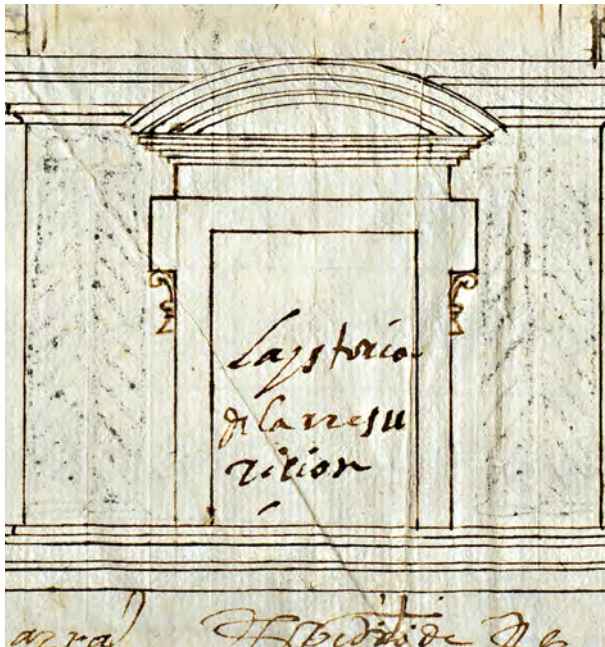 la ystoria
de la rresu
ricion